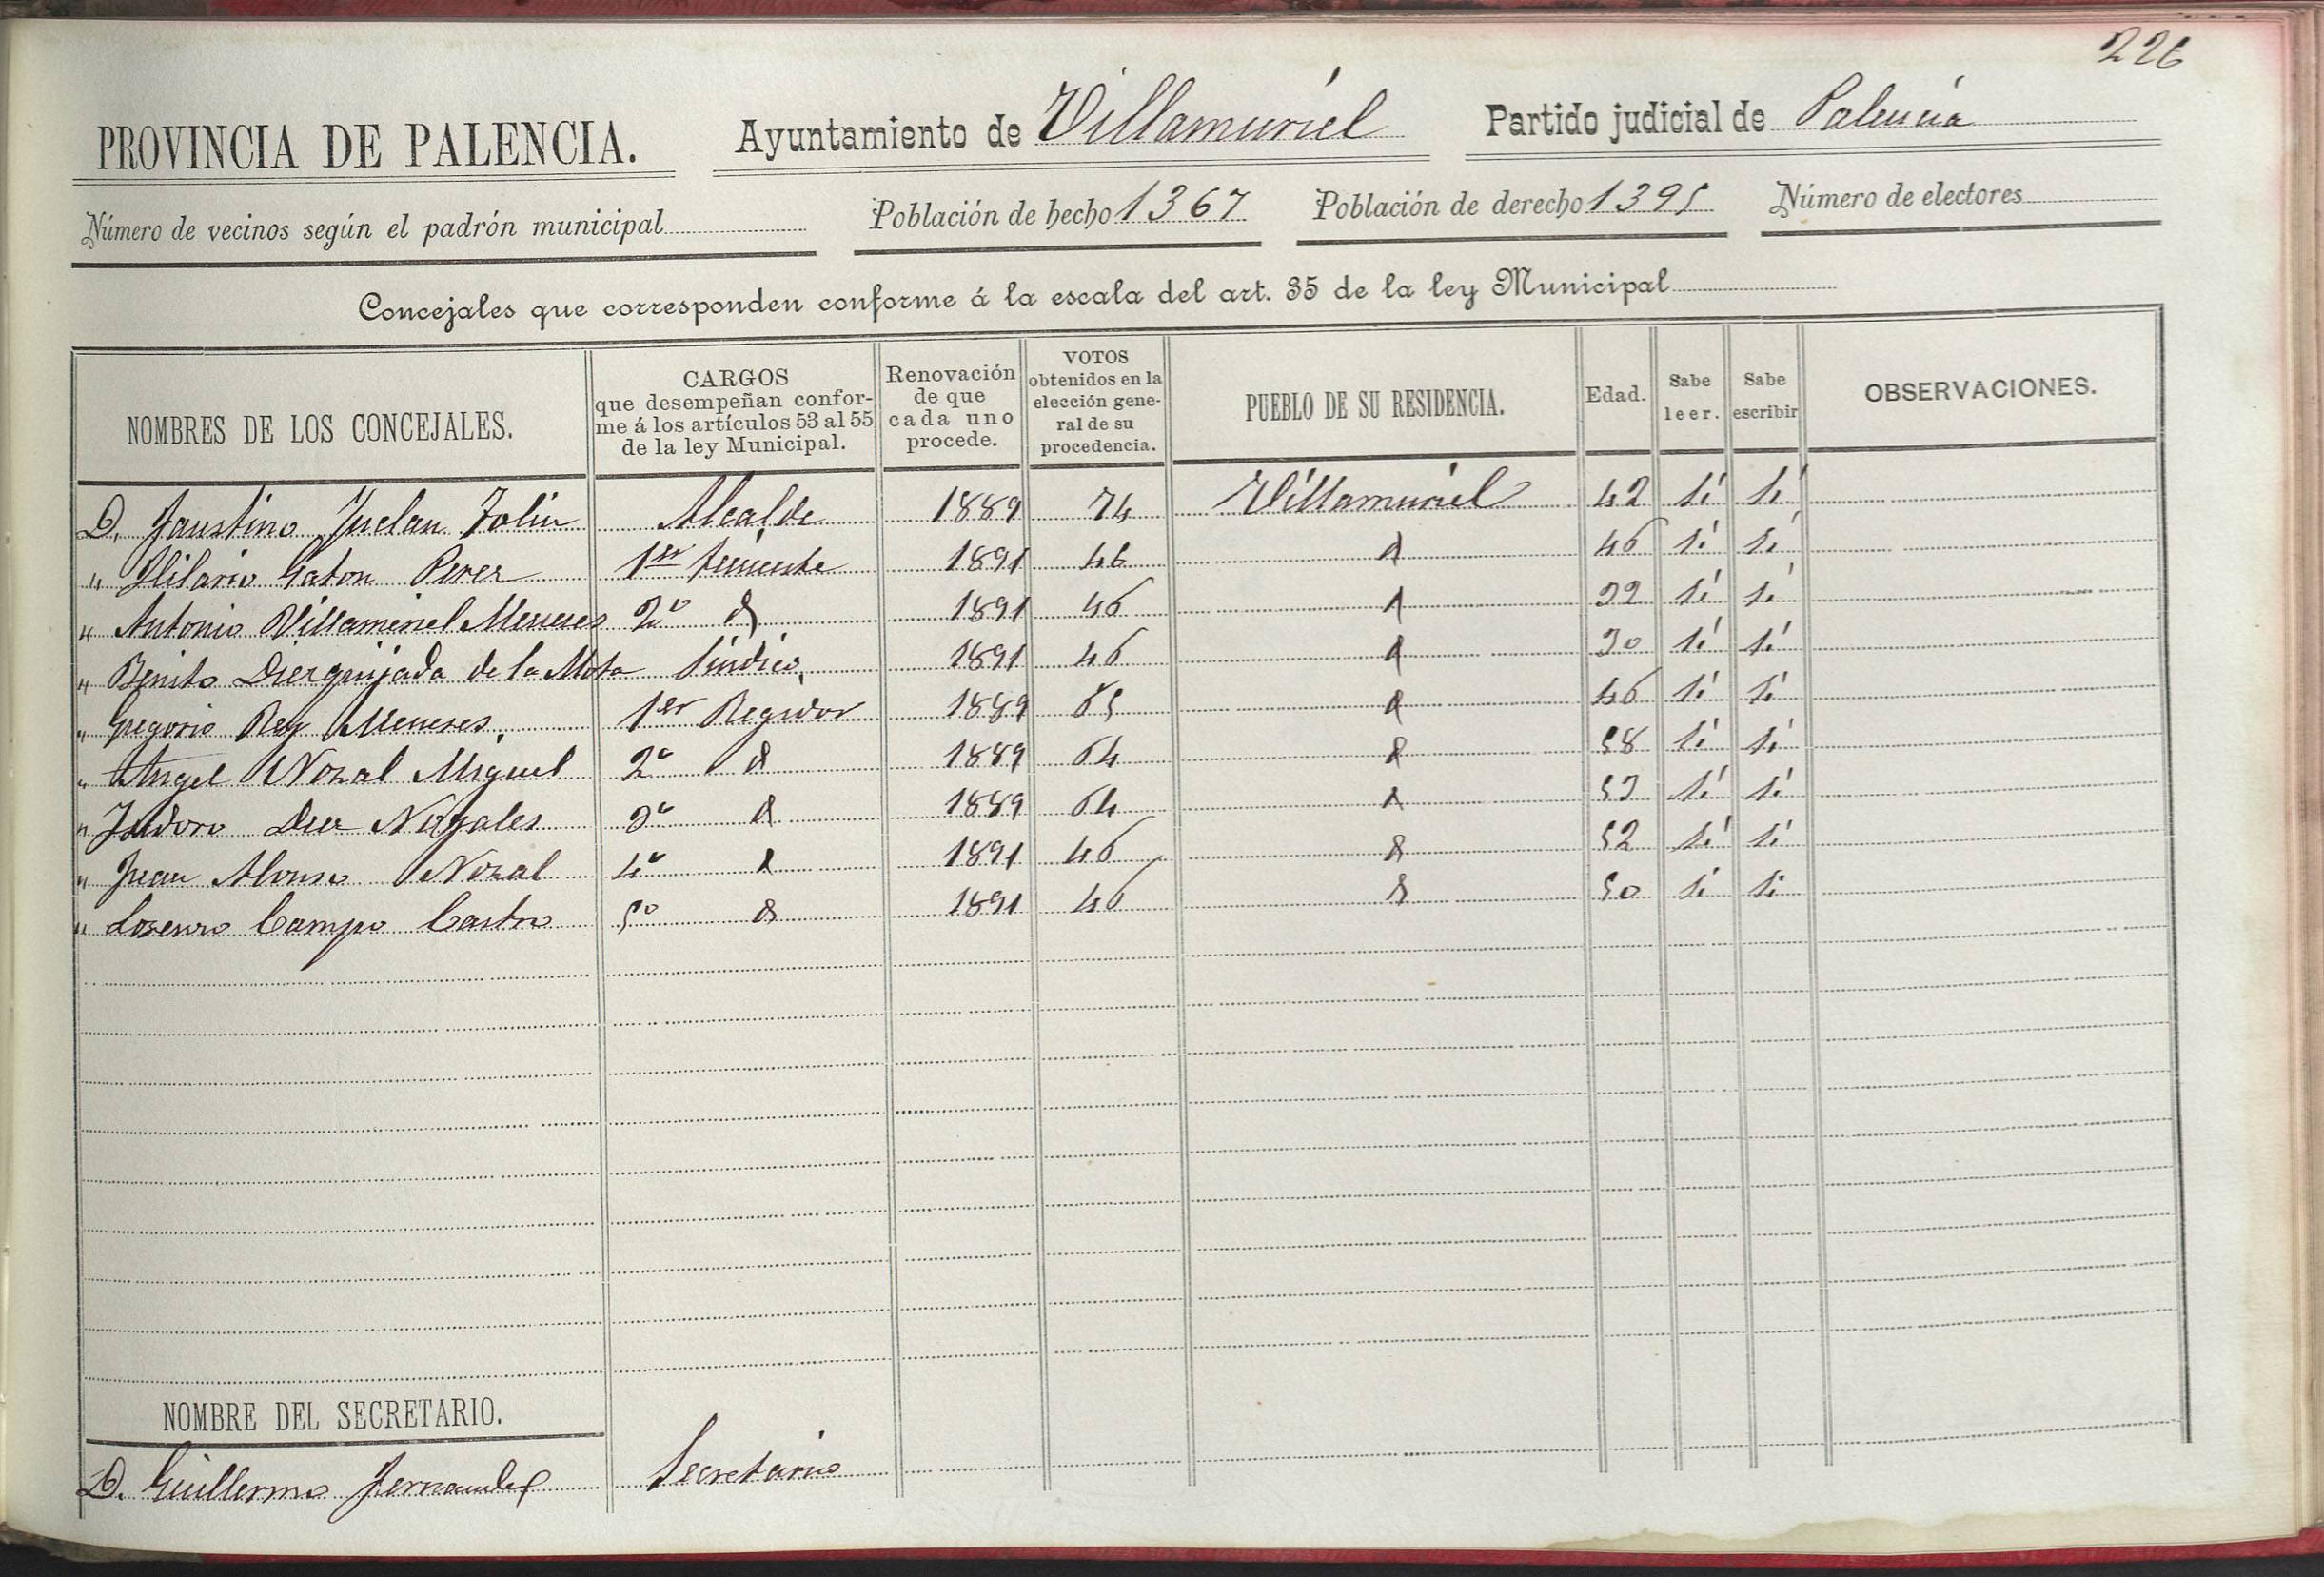 226
PROVINCIA DE PALENCIA. Ayuntamiento de Villamuriel Partido judicial de Palencia
Número de vecinos según el padrón municipal Población de hecho 1367 Población de derecho 1395 Número de electores
Concejales que corresponden conforme á la escala del art. 35 de la ley Municipal
NOMBRES DE LOS CONCEJALES. CARGOS que desempeñan confor- me á los artículos 53 al 55 de la ley Municipal. Renovación de que cada uno procede. VOTOS obtenidos en la elección gene- ral de su procedencia. PUEBLO DE SU RESIDENCIA. Edad. Sabe leer. Sabe escribir OBSERVACIONES.
D. Faustino Inclan Tolin Alcalde 1889 74 Villamuriel 42 Si Si
" Hilario Gaton Perez 1er teniente 1891 46 46 Si Si
" Antonio Villameriel Meneses 2º 1891 46 32 Si Si
" Benito Diezquijada de la Mota Sindico, 1891 46 30 Si Si
" Gregorio Rey Meneses, 1er Regidor 1889 65 46 Si Si
" Angel Nozal Miguel 2º 1889 64 58 Si Si
" Isidoro Diez Nogales 3º 1889 64 53 Si Si
" Juan Alonso Nozal 4º 1891 46 52 Si Si
" Lorenzo Campo Castro 5º 1891 46 50 Si Si
NOMBRE DEL SECRETARIO.
D. Guillermo Fernandez Secretario